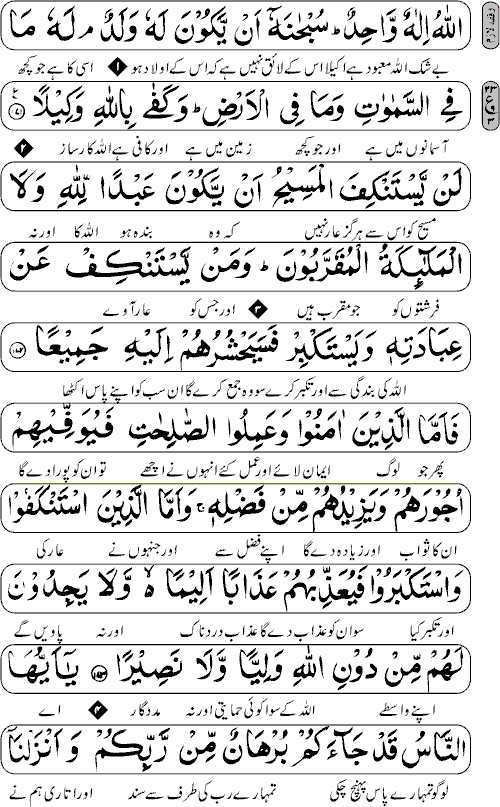 اللّٰهُ اِلٰهٌ وَّاحِدٌ ؕ سُبْحٰنَهٗۤ اَنْ يَّكُوْنَ لَهٗ وَلَدٌ ۘ لَهٗ مَا
بے شک اللہ معبود ہے اکیلا اس کے لائق نہیں ہے کہ اس کے اولاد ہو ۱ اسی کا ہے جو کچھ
فِي السَّمٰوٰتِ وَمَا فِي الْاَرْضِ ؕ وَكَفٰى بِاللّٰهِ وَكِيْلًا
آسمانوں میں ہے اور جو کچھ زمین میں ہے اور کافی ہے اللہ کارساز ۲
لَنْ يَّسْتَنْكِفَ الْمَسِيْحُ اَنْ يَّكُوْنَ عَبْدًا لِّلّٰهِ وَلَا
مسیح کو اس سے ہرگز عار نہیں کہ وہ بندہ ہو اللہ کا اور نہ
الْمَلٰٓئِكَةُ الْمُقَرَّبُوْنَ ؕ وَمَنْ يَّسْتَنْكِفْ عَنْ
فرشتوں کو جو مقرب ہیں ۳ اور جس کو عار آوے
عِبَادَتِهٖ وَيَسْتَكْبِرْ فَسَيَحْشُرُهُمْ اِلَيْهِ جَمِيْعًا
اللہ کی بندگی سے اور تکبر کرے سو وہ جمع کرے گا ان سب کو اپنے پاس اکٹھا
فَاَمَّا الَّذِيْنَ اٰمَنُوْا وَعَمِلُوا الصّٰلِحٰتِ فَيُوَفِّيْهِمْ
پھر جو لوگ ایمان لائے اور عمل کئے انہوں نے اچھے تو ان کو پورا دے گا
اُجُوْرَهُمْ وَيَزِيْدُهُمْ مِّنْ فَضْلِهٖ ۚ وَاَمَّا الَّذِيْنَ اسْتَنْكَفُوْا
ان کا ثواب اور زیادہ دے گا اپنے فضل سے اور جنہوں نے عار کی
وَاسْتَكْبَرُوْا فَيُعَذِّبُهُمْ عَذَابًا اَلِيْمًا ۙ وَّلَا يَجِدُوْنَ
اور تکبر کیا سو ان کو عذاب دے گا عذاب دردناک اور نہ پاویں گے
لَهُمْ مِّنْ دُوْنِ اللّٰهِ وَلِيًّا وَّلَا نَصِيْرًا ۝۱۷۳ يٰۤاَيُّهَا
اپنے واسطے اللہ کے سوا کوئی حمایتی اور نہ مددگار ۴ اے
النَّاسُ قَدْ جَآءَكُمْ بُرْهَانٌ مِّنْ رَّبِّكُمْ وَاَنْزَلْنَاۤ
لوگو تمہارے پاس پہنچ چکی تمہارے رب کی طرف سے سند اور اتاری ہم نے